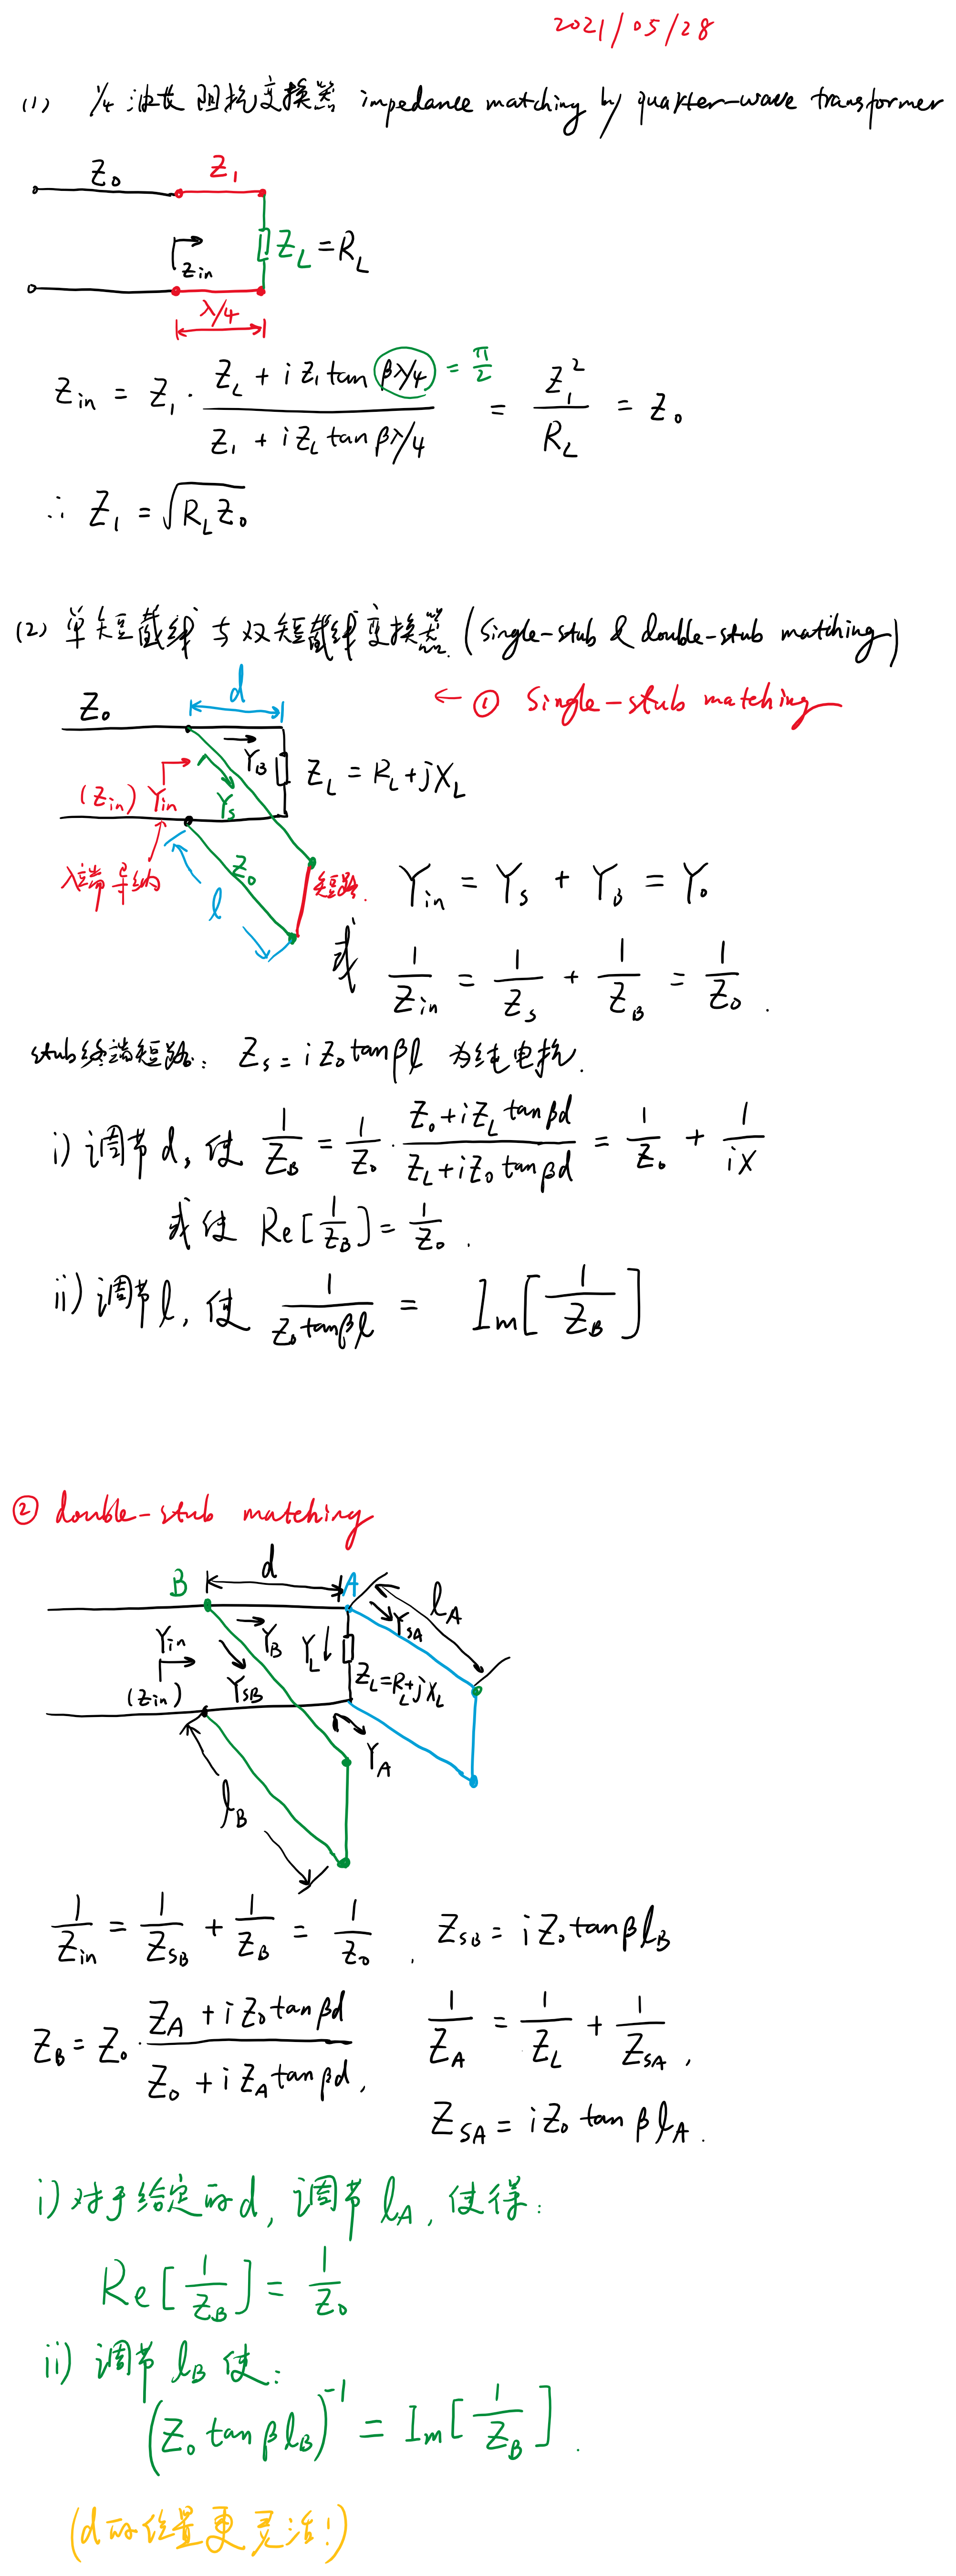 2021/05/28
(1) 1/4 波长 阻抗变换器 impedance matching by quarter-wave transformer
Z₀ Z₁
Z_in Z_L = R_L
λ/4
Z_in = Z₁ · (Z_L + i Z₁ tan βλ/4) / (Z₁ + i Z_L tan βλ/4) = Z₁² / R_L = Z₀
= π/2
∴ Z₁ = √(R_L Z₀)
(2) 单短截线 与 双短截线变换器. (single-stub & double-stub matching)
← ① Single-stub matching
d
Z₀
Y_B Z_L = R_L + jX_L
(Z_in) Y_in Y_s
入端导纳 Z₀ 短路.
l
Y_in = Y_s + Y_B = Y₀
或 1/Z_in = 1/Z_s + 1/Z_B = 1/Z₀ .
stub终端短路: Z_s = i Z₀ tanβl 为纯电抗.
i) 调节 d, 使 1/Z_B = 1/Z₀ · (Z₀ + i Z_L tanβd) / (Z_L + i Z₀ tanβd) = 1/Z₀ + 1/(iX)
或使 Re[1/Z_B] = 1/Z₀ .
ii) 调节 l, 使 1/(Z₀ tanβl) = Im[1/Z_B]
② double-stub matching
B d A l_A
Y_SA
Y_in Y_B Y_L
(Z_in) Y_SB Z_L = R_L + jX_L
Y_A
l_B
1/Z_in = 1/Z_SB + 1/Z_B = 1/Z₀ . Z_SB = i Z₀ tanβl_B
Z_B = Z₀ · (Z_A + i Z₀ tanβd) / (Z₀ + i Z_A tanβd) , 1/Z_A = 1/Z_L + 1/Z_SA ,
Z_SA = i Z₀ tan β l_A .
i) 对于给定的 d, 调节 l_A, 使得:
Re[1/Z_B] = 1/Z₀
ii) 调节 l_B 使:
(Z₀ tan β l_B)⁻¹ = Im[1/Z_B] .
(d 的位置更灵活!)